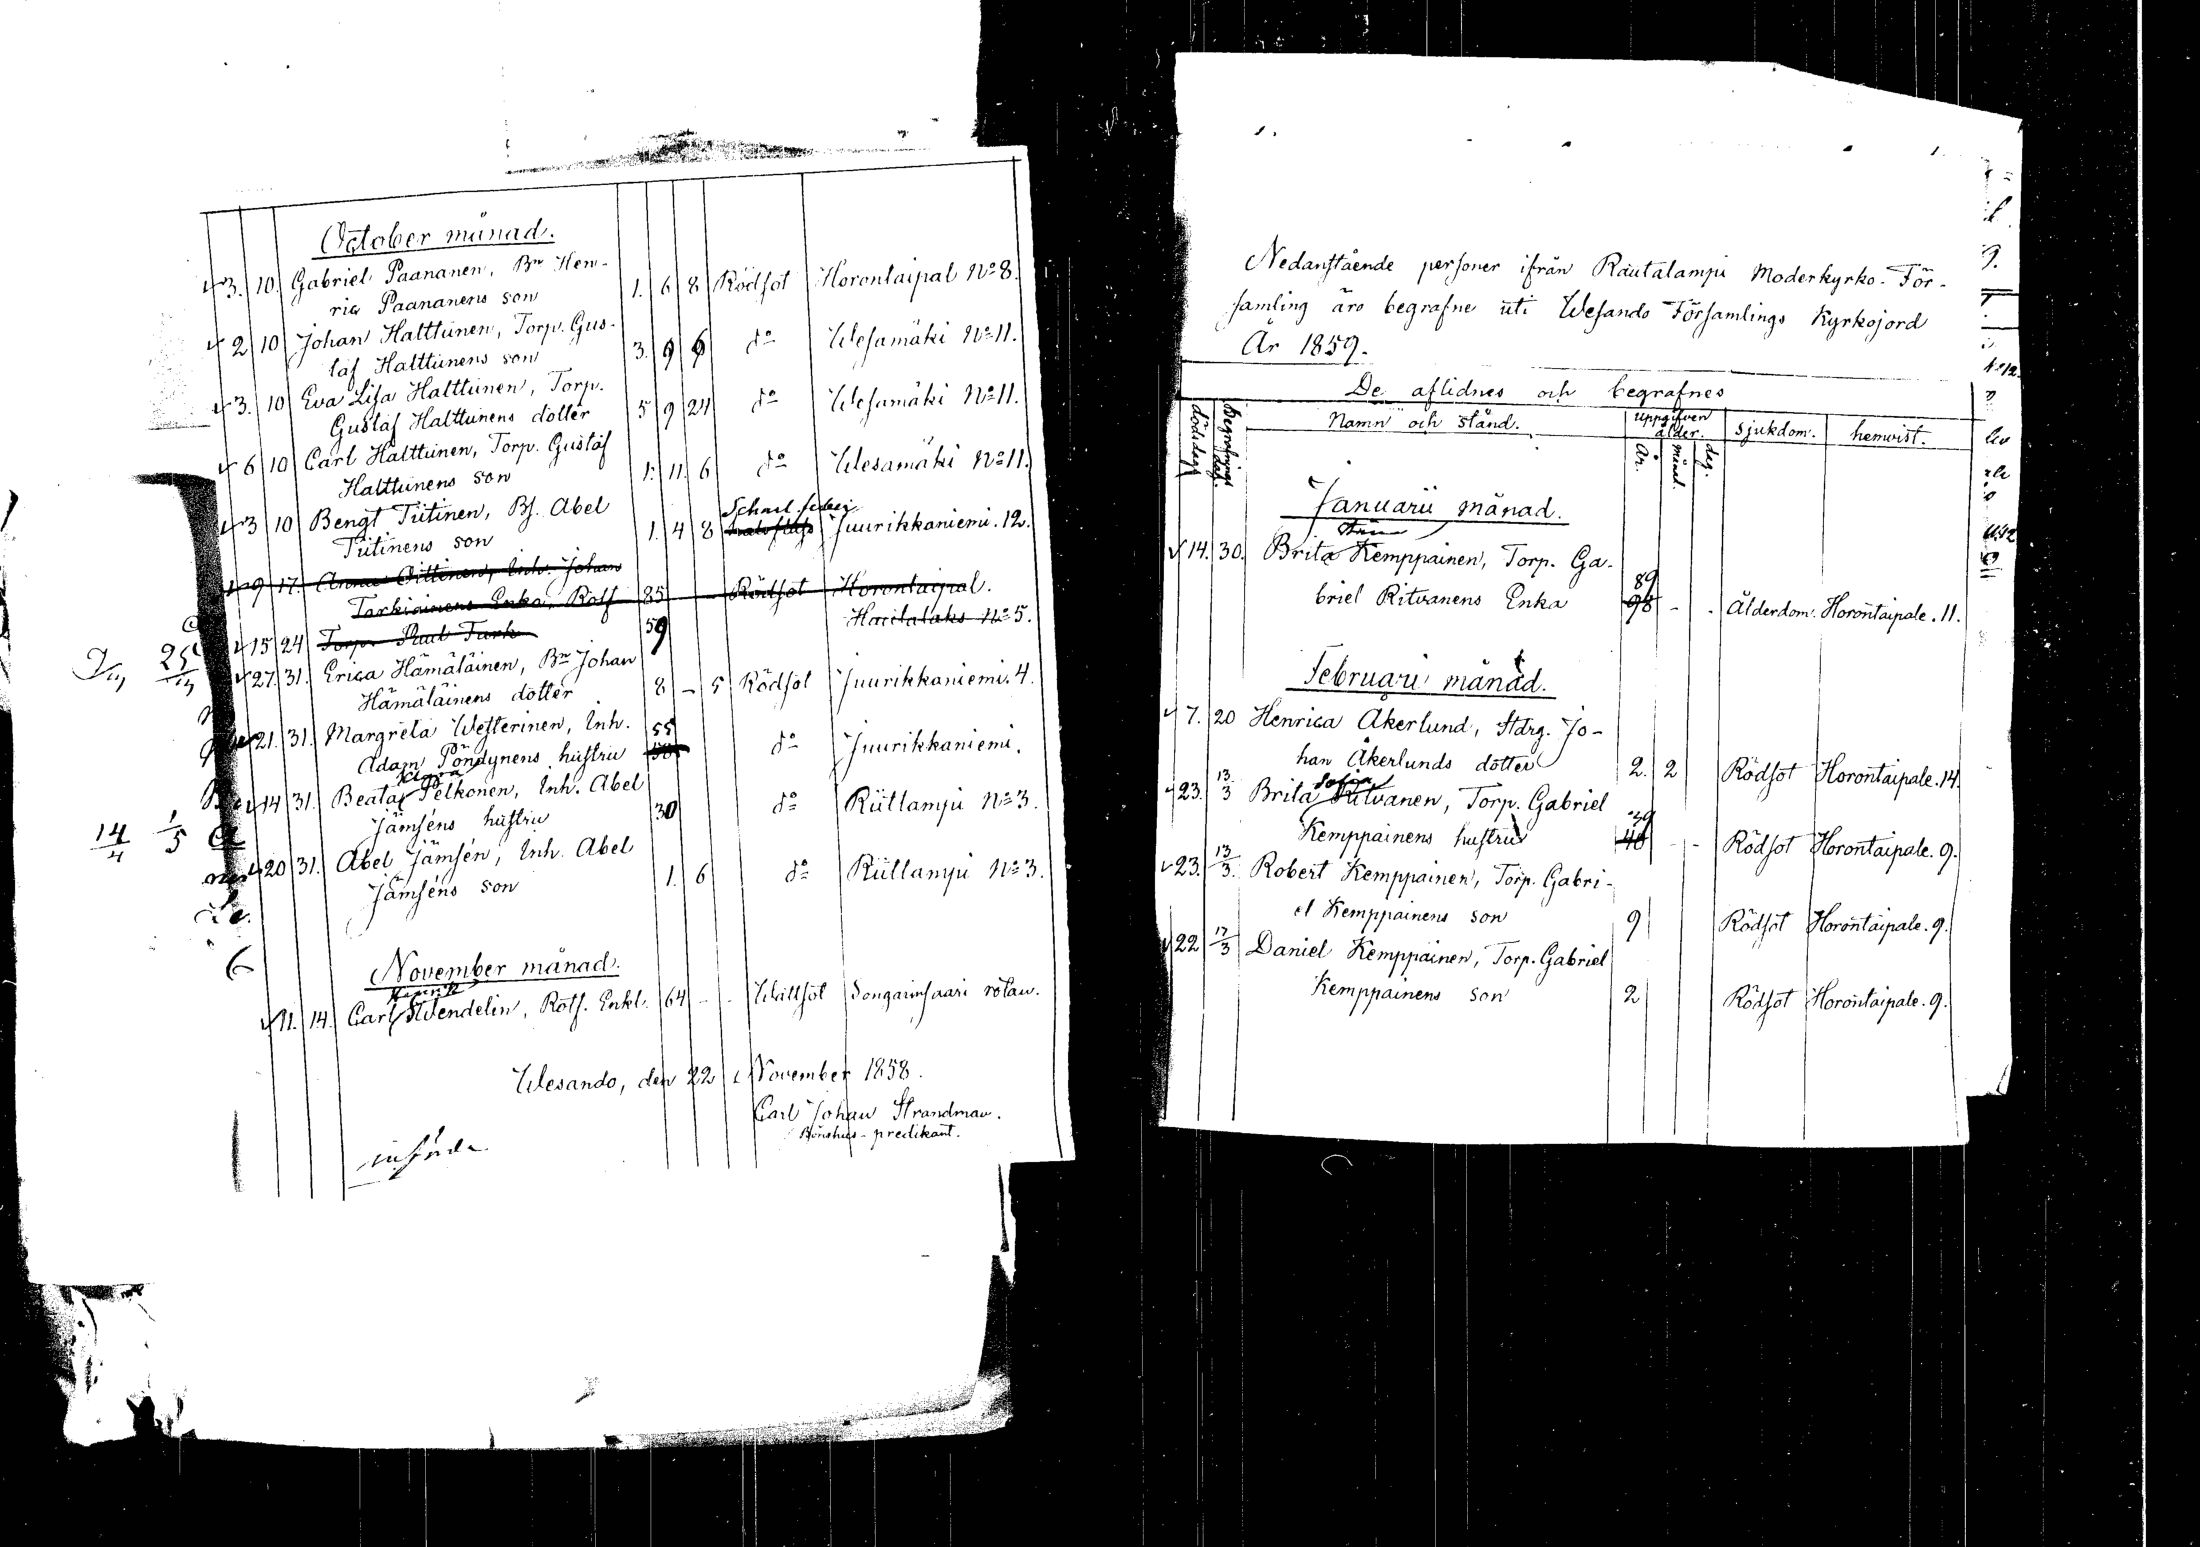 October månad.
3. 10. Gabriel Paananen, Bn Hen-
ric Paananens son 1. 6 8 Rödsot Horontaipal No 8.
2 10 Johan Halttunen, Torp. Gus-
taf Halttunens son 3. 9 6 do Wesamäki No 11.
3. 10 Eva Lisa Halttunen, Torp.
Gustaf Halttunens dotter 5 9 24 do Wesamäki No 11.
6 10 Carl Halttunen, Torp. Gustaf
Halttunens son 1. 11. 6 do Wesamäki No 11.
3 10 Bengt Tiitinen, Bs. Abel
Scharl. feber
Tiitinens son 1. 4 8 Juurikkaniemi. 12.
9 17. Anna Tiittinen, Inh. Johan
Tarkiainens Enka, Rotf 85 Rödsot Horontaipal.
15 24 Torp. Paul Turk 59 Haitalaks No 5.
27. 31. Erica Hämäläinen, Bn Johan
Hämäläinens dotter 8 - 5 Rödsot Juurikkaniemi. 4.
21. 31. Margreta Westerinen, Inh. 55
Adam Pöndynens hustru 50 do Juurikkaniemi.
Klara
14 31. Beata Pelkonen, Inh. Abel
Jämséns hustru 30 do Rüttampi No 3.
20 31. Abel Jämsén, Inh. Abel
Jämséns son 1. 6 do Rüttampi No 3.
14/4 1/5
November månad.
Henrik
11. 14. Carl Wendelin, Rotf. Enkl. 64 - - Wattsot Songarinsaari rotan.
Wesando, den 22 November 1858.
Carl Johan Strandman.
Bönehus-predikant.
införde
Nedanstående personer ifrån Rautalampi Moderkyrko-För-
samling äro begrafne uti Wesando Församlings Kyrkojord
År 1859.
De aflidnes och begrafnes
dödsdag Begrafnings dag. Namn och stånd. uppgifven ålder. År. Månad. dag. sjukdom. hemvist.
Januarii månad.
14. 30. Brita Kemppainen, Torp. Ga-
89
briel Ritvanens Enka 98 - - Ålderdom. Horontaipale. 11.
Februarii månad.
7. 20 Henrica Åkerlund, Stdrg. Jo-
han Åkerlunds dotter 2. 2 Rödsot Horontaipale. 14.
Sofia
23. 13/3 Brita Ritvanen, Torp. Gabriel
39
Kemppainens hustru 40 - - Rödsot Horontaipale. 9.
23. 13/3. Robert Kemppainen, Torp. Gabri-
el Kemppainens son 9 Rödsot Horontaipale. 9.
22 17/3 Daniel Kemppainen, Torp. Gabriel
Kemppainens son 2 Rödsot Horontaipale. 9.